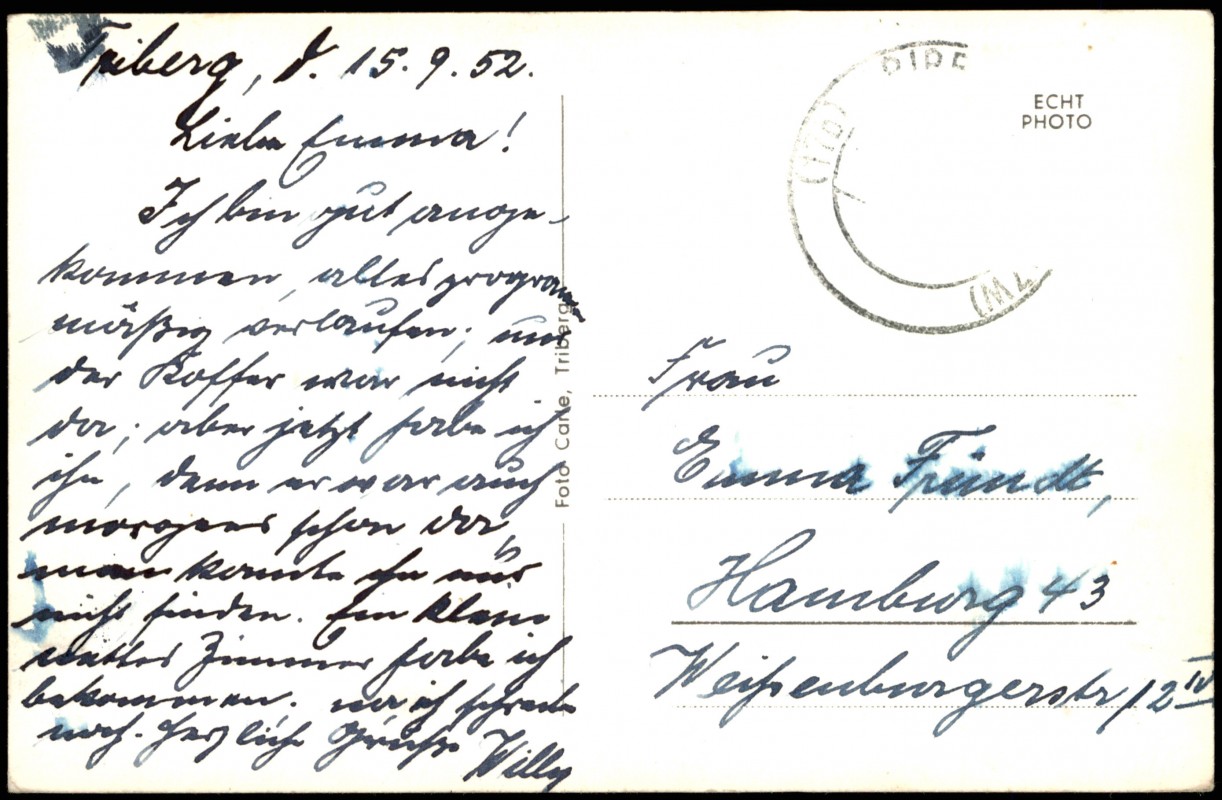 Triberg, d. 15.9.52.
Liebe Emma!
Ich bin gut ange-
kommen, alles programm
mäßig verlaufen; nur
der Koffer war nicht
da; aber jetzt habe ich
ihn, denn er war auch
morgens schon da,
man konnte ihn nur
nicht finden. Ein klein
nettes Zimmer habe ich
bekommen. na ich schreibe
noch. Herzliche Grüße
Willy
Foto Carle, Triberg
ECHT
PHOTO
Frau
Emma Freundt,
Hamburg 43
Weißenburgerstr 12 IV